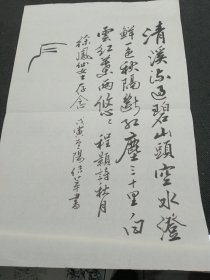 清溪流過碧山頭空水澄
鮮一色秋隔斷紅塵三十里白
雲紅葉兩悠悠 程顥詩秋月
徐鳳仙女士存念 戊寅首陽 草書